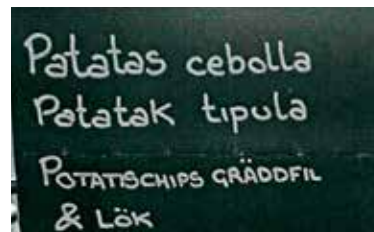 Patatas cebolla
Patatak tipula
POTATISCHIPS GRÄDDFIL
& LÖK